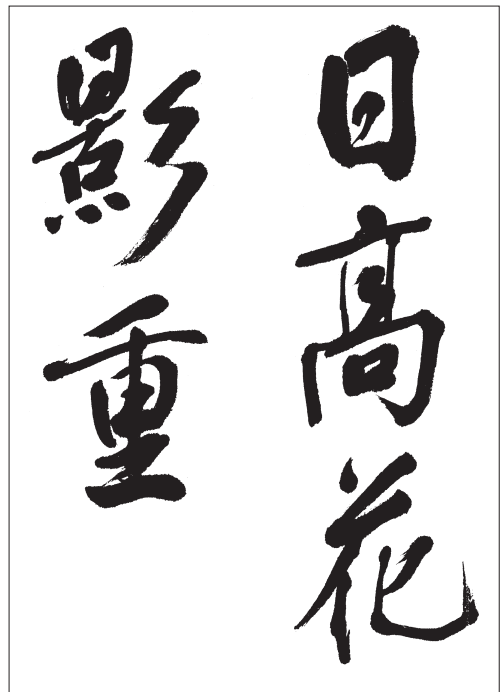 日高花
影重